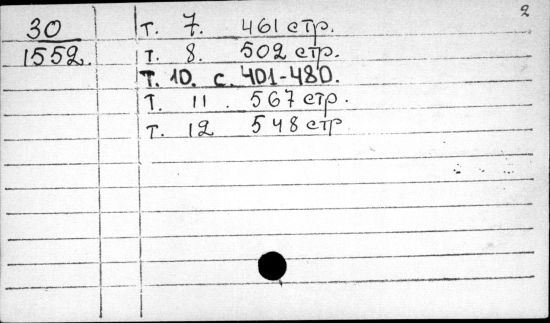 2
30
1552.
т. 7. 461 стр.
т. 8. 502 стр.
т. 10. с. 401-480.
т. 11. 567 стр.
т. 12 548 стр